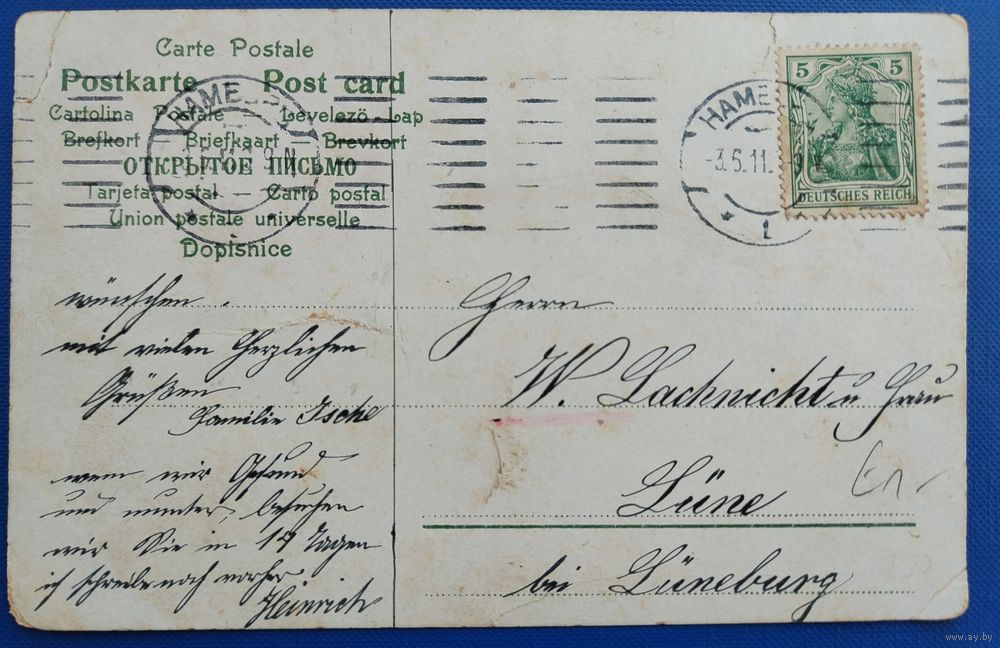 Carte Postale
Postkarte Post card
Cartolina Postale Levelező-Lap
Brefkort — Briefkaart — Brevkort
ОТКРЫТОЕ ПИСЬМО
Tarjeta postal — Carto postal
Union postale universelle
Dopisnice
HAMELN
HAME
-3.5.11.
1
5 5
DEUTSCHES REICH
wünschen.
mit vielen Herzlichen
Grüßen
Familie Ische
wenn wir Gesund
und munter, besuchen
wir Sie in 14 Tagen
ich schreibe noch vorher
Heinrich
Herrn
W. Lachnicht u Frau
Lüne
bei Lüneburg
www.ay.by